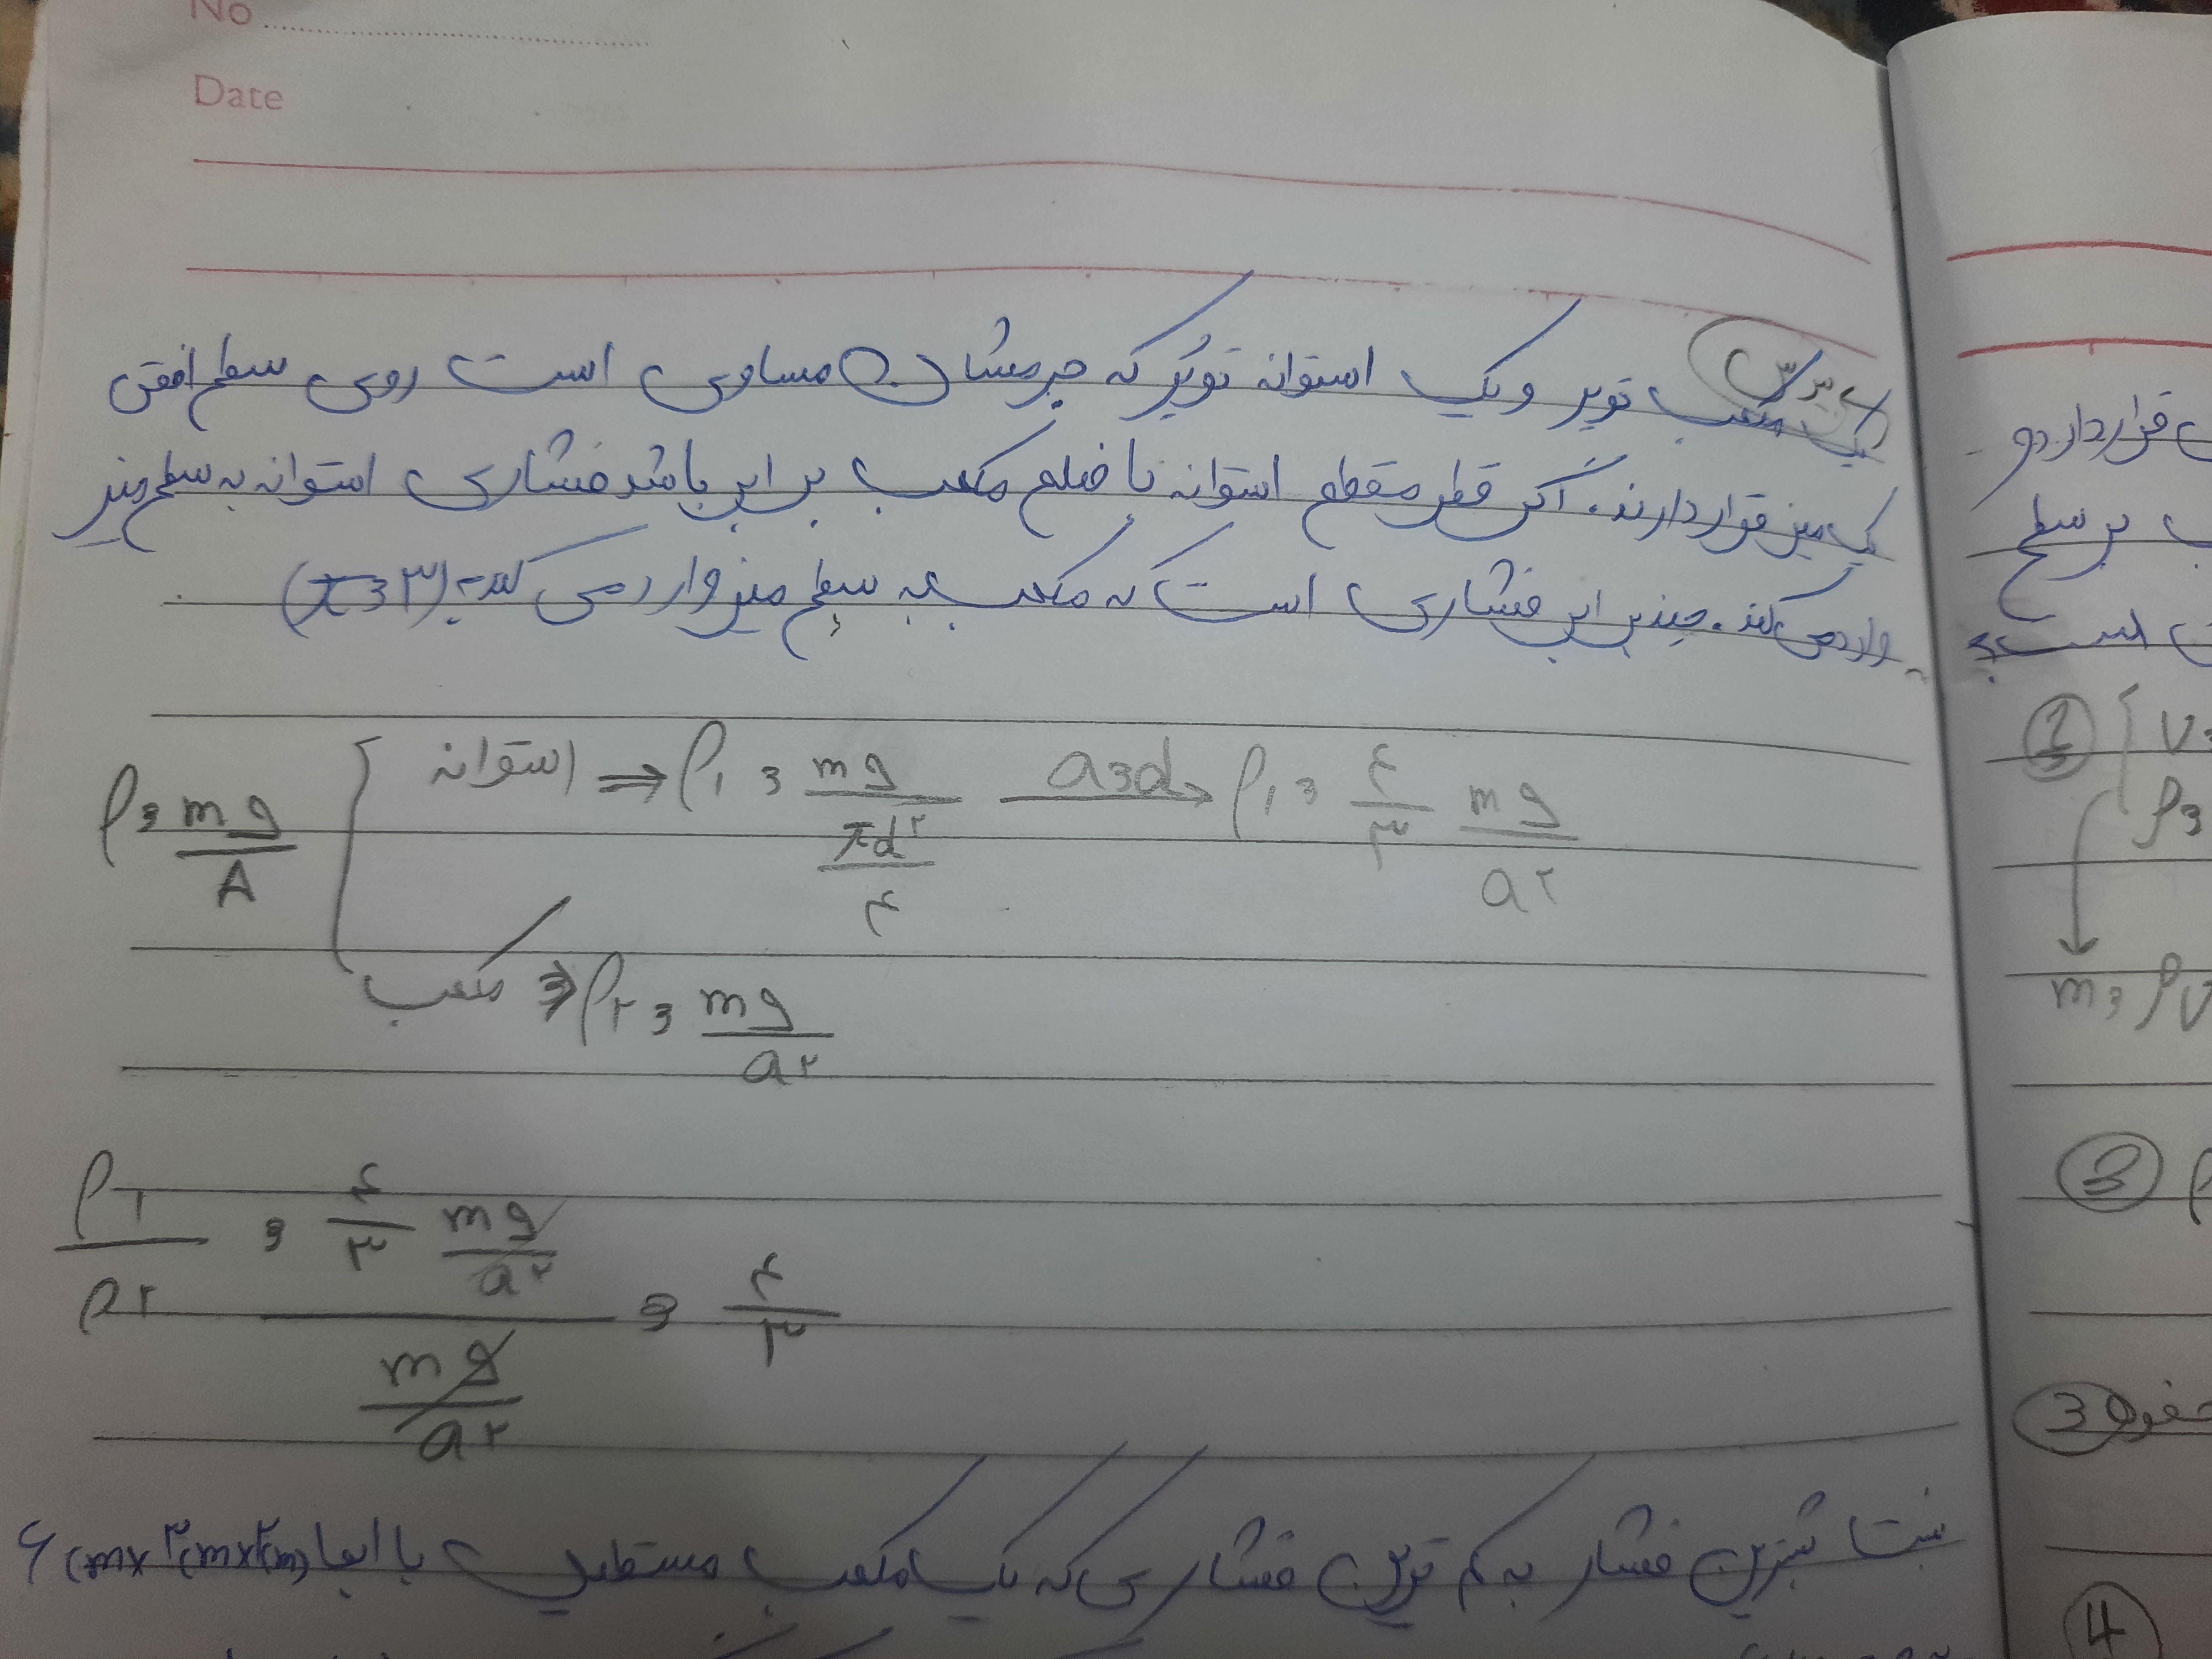 No
Date
پرسش
یک مکعب توپر و یک استوانه توپر که جرمشان مساوی است روی سطح افقی
یک میز قرار دارند. اگر قطر مقطع استوانه با ضلع مکعب برابر باشد فشاری استوانه به سطح میز
وارد می کند. چند برابر فشاری است که مکعب به سطح میز وارد می کند؟ (π = ۳)
P = mg/A
استوانه ⇒ P۱ = mg/(πd²/۴) a=d → P۱ = ۴/۳ mg/a²
مکعب ⇒ P۲ = mg/a²
P۱/P۲ = (۴/۳ mg/a²)/(mg/a²) = ۴/۳
فشار به کم ترین فشاری که یک مکعب مستطیل با ابعاد
قرار دارد و
بر سطح
است؟
1
ρ =
m = ρV
2
3
4